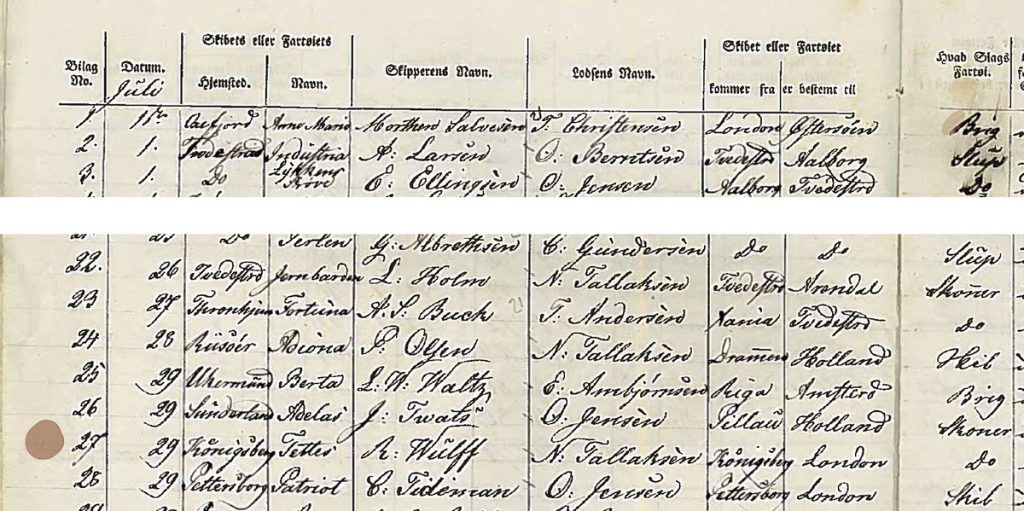 Skibets eller Fartøiets Skibet eller Fartøiet
Bilag No. Datum. Hjemsted. Navn. Skipperens Navn. Lodsens Navn. kommer fra er bestemt til Hvad Slags Fartøi.
Juli
1 1ste Oxefjord Anne Marie Morthen Salvesen T: Christensen London Østersöen Brig
2. 1. Tvedestrand Industria A: Larsen O: Berntsen Tvedestrd Aalborg Slup
3. 1. Do Lykkens Prøve E: Ellingsen O: Jensen Aalborg Tvedestrd Do
Do G: Albrethsen C: Gundersen Do Do Slup
22. 26 Tvedestrd Jernbarden L: Holm N: Tallaksen Tvedestrd Arendal Skoner
23 27 Thronhjem Fortuna A. S: Buch T: Andersen Xania Tvedestrd Do
24 28 Riisöer Adiona P: Olsen N: Tallaksen Drammen Holland Skib
25 29 Ukermünd Berta L: W: Waltz E: Ambjörnsen Riga Amsterd Brig
26 29 Sunderland Adelas J: Twats O: Jensen Pillau Holland Skoner
27 29 Königsberg Tettes R: Wulff N: Tallaksen Königsberg London Do
28 29 Pettersborg Patriot C: Tideman O: Jensen Pettersborg London Skib